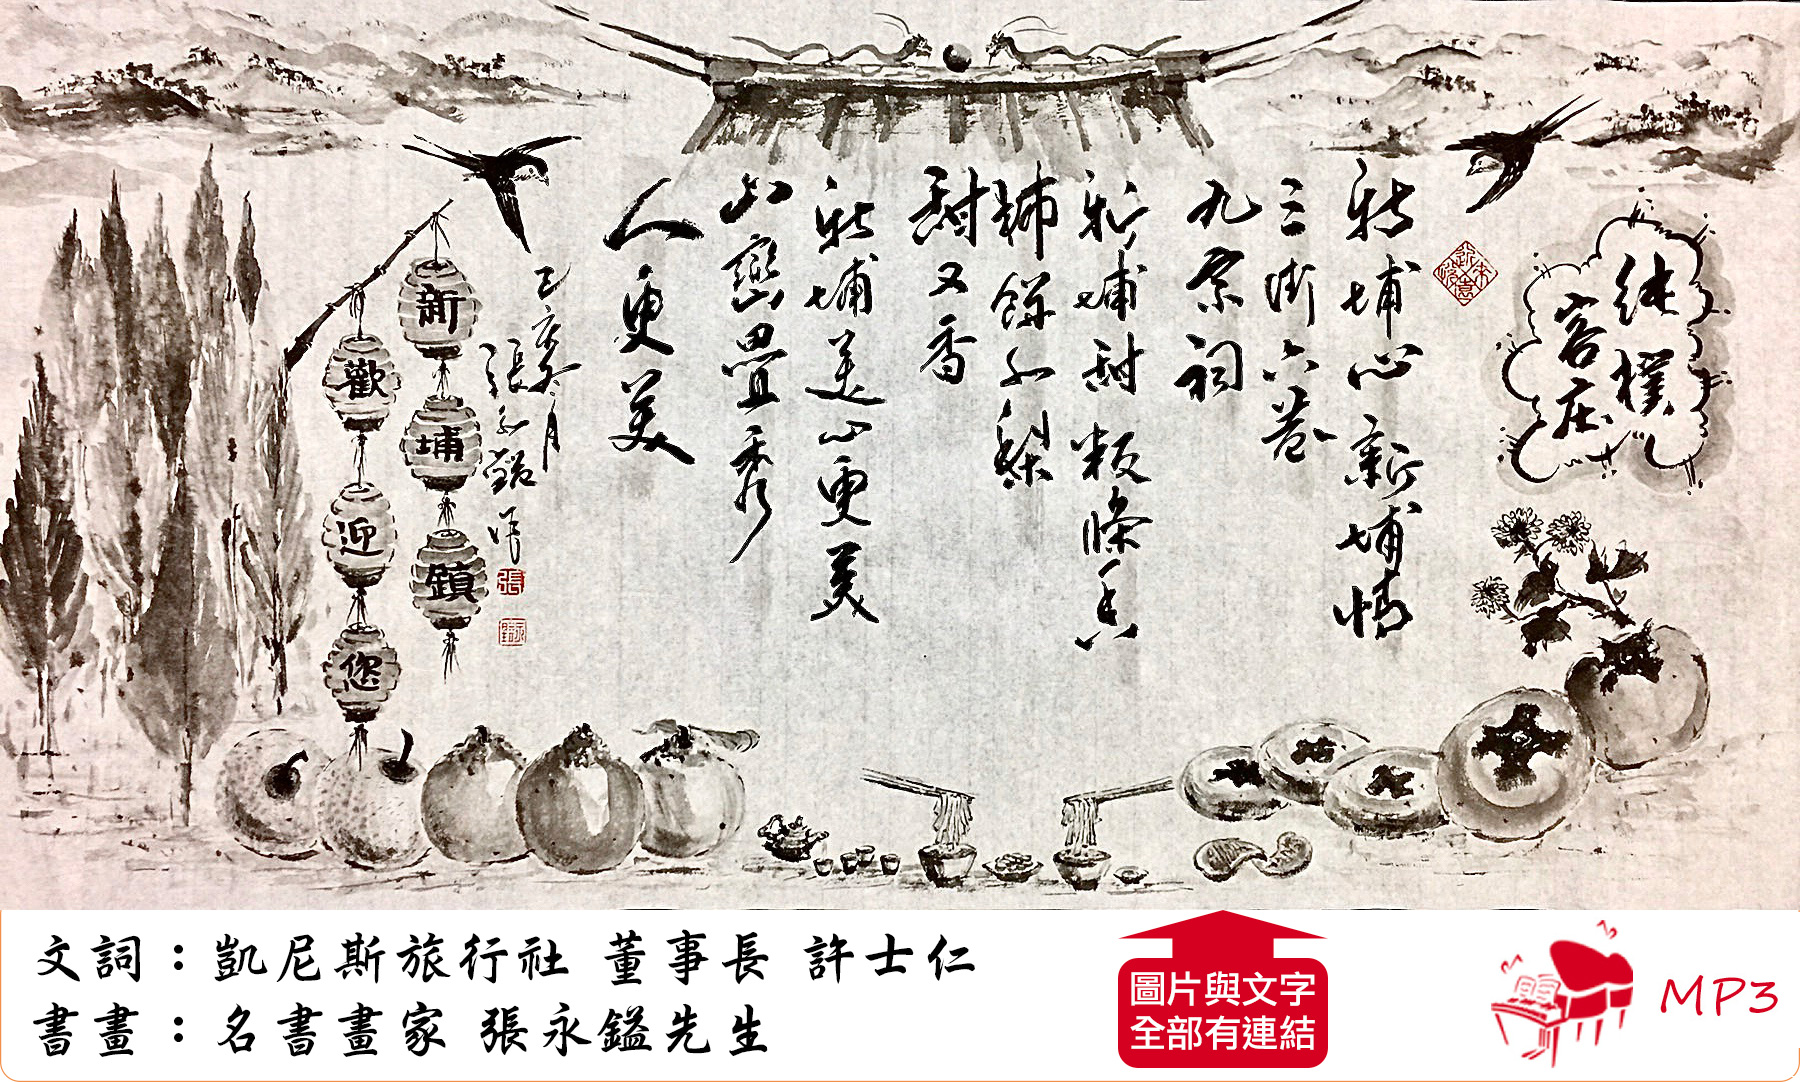 純樸
客庄
新埔心新埔情
三街六巷
九宗祠
新埔甜粄條香
柿餅水梨
甜又香
新埔美心更美
山巒疊秀
人更美
己亥冬月
張永鎰作
新埔鎮
歡迎您
文詞：凱尼斯旅行社 董事長 許士仁
書畫：名書畫家 張永鎰先生
圖片與文字
全部有連結
MP3